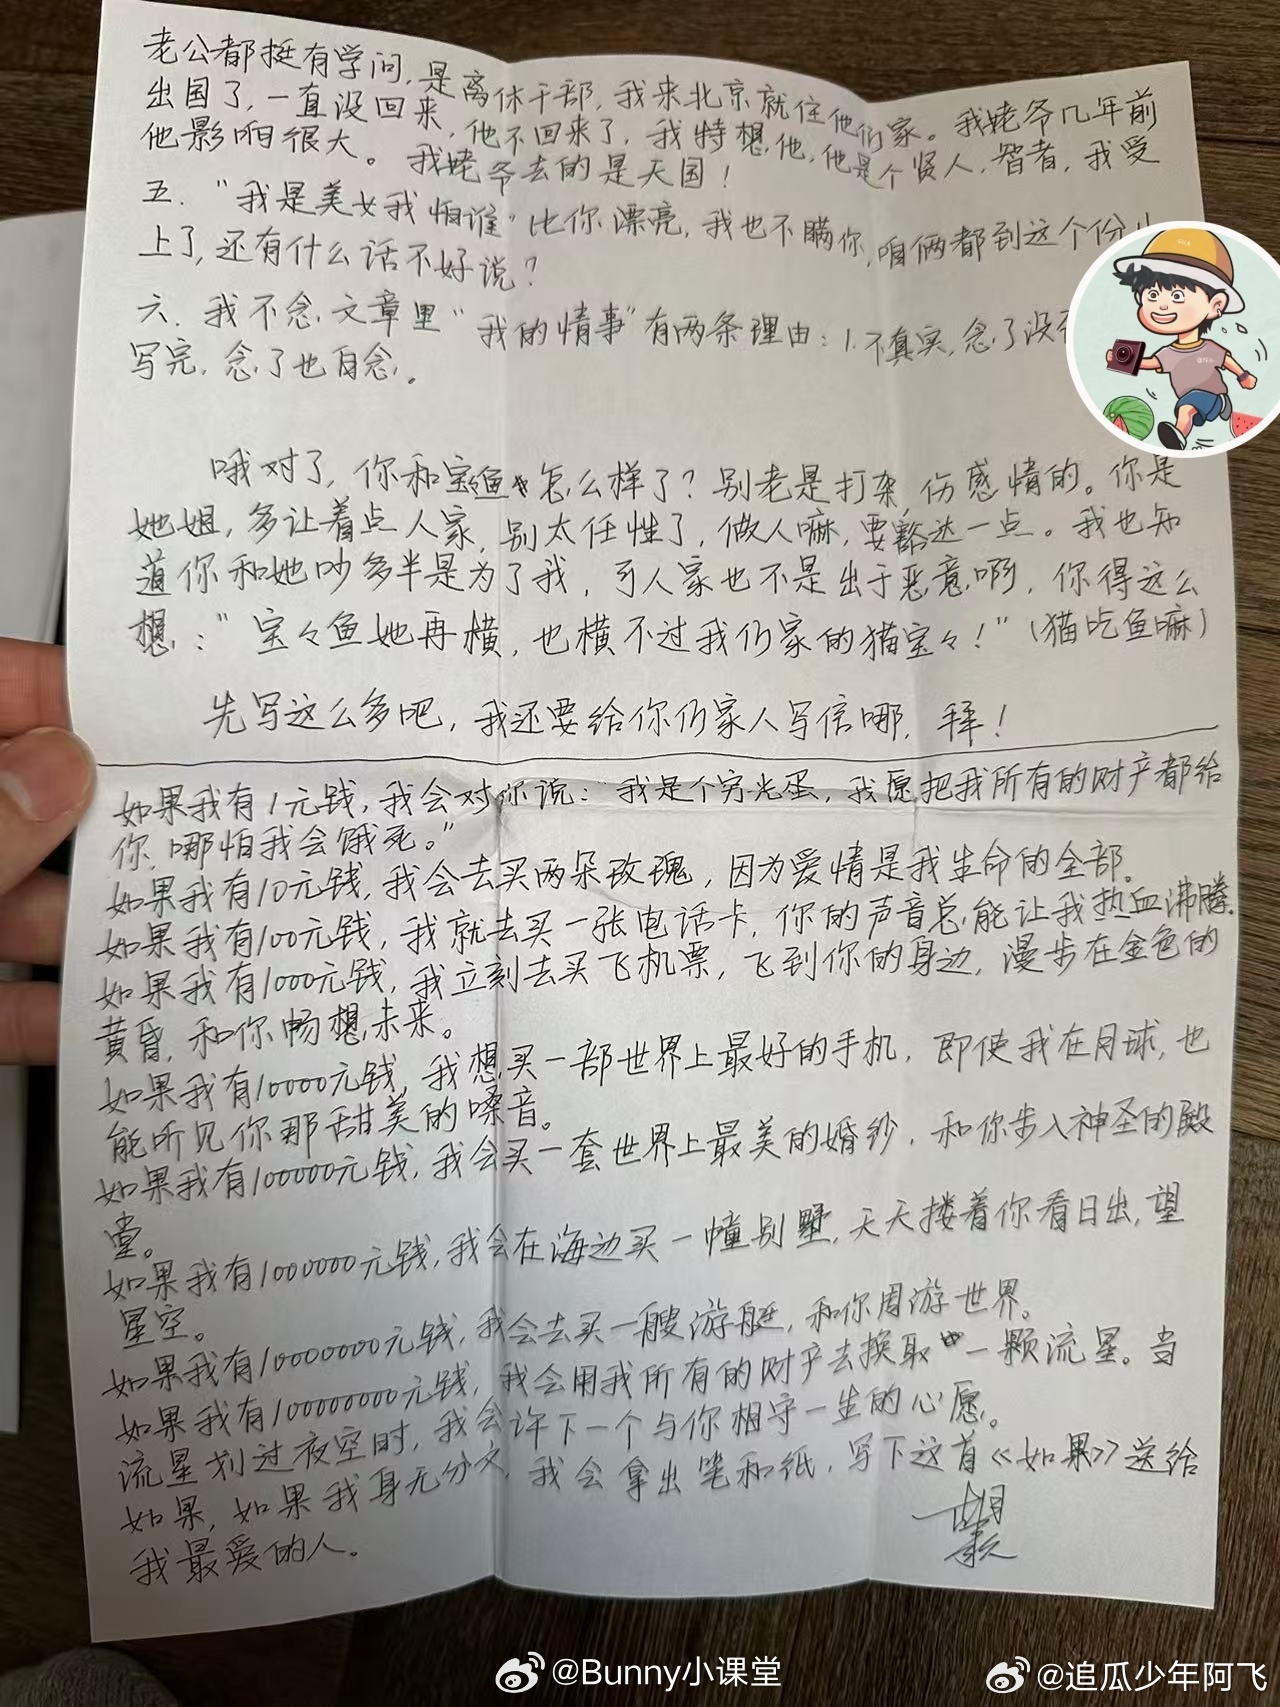 老公都挺有学问,是离休干部,我来北京就住他们家。我姥爷几年前
出国了,一直没回来,他不回来了,我特想他,他是个贤人,智者,我受
他影响很大。我姥爷去的是天国!
五."我是美女我怕谁"比你漂亮,我也不瞒你,咱俩都到这个份儿
上了,还有什么话不好说?
六.我不念文章里"我的情事"有两条理由:1.不真实,念了没
写完,念了也白念。
哦对了,你和宝鱼怎么样了?别老是打架,伤感情的。你是
她姐,多让着点人家,别太任性了,做人嘛,要豁达一点。我也知
道你和她吵多半是为了我,可人家也不是出于恶意啊,你得这么
想:"宝々鱼她再横,也横不过我们家的猫宝々!"(猫吃鱼嘛)
先写这么多吧,我还要给你们家人写信哪,拜!
如果我有1元钱,我会对你说:我是个穷光蛋,我愿把我所有的财产都给
你,哪怕我会饿死。"
如果我有10元钱,我会去买两朵玫瑰,因为爱情是我生命的全部。
如果我有100元钱,我就去买一张电话卡,你的声音总能让我热血沸腾。
如果我有1000元钱,我立刻去买飞机票,飞到你的身边,漫步在金色的
黄昏,和你畅想未来。
如果我有10000元钱,我想买一部世界上最好的手机,即使我在月球,也
能听见你那甜美的嗓音。
如果我有100000元钱,我会买一套世界上最美的婚纱,和你步入神圣的殿
堂。
如果我有1000000元钱,我会在海边买一幢别墅,天天搂着你看日出,望
星空。
如果我有10000000元钱,我会去买一艘游艇,和你周游世界。
如果我有100000000元钱,我会用我所有的财产去换取一颗流星。当
流星划过夜空时,我会许下一个与你相守一生的心愿。
如果,如果我身无分文,我会拿出笔和纸,写下这首《如果》送给
我最爱的人。
@Bunny小课堂
@追瓜少年阿飞